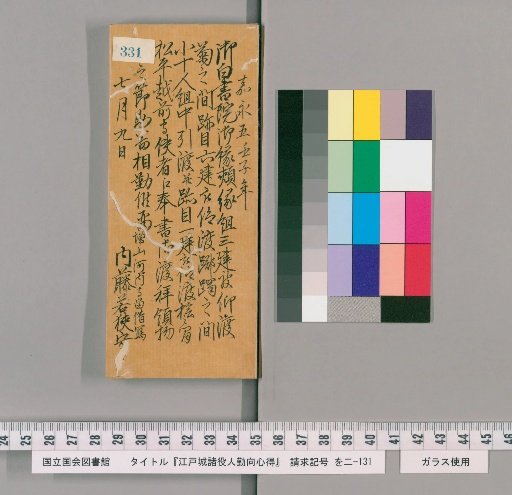 331
嘉永五壬子年
御白書院御縁頬縁組三建被仰渡
菊之間跡目六建被仰渡躑躅之間
小十人組中引渡並跡目一建被仰渡桧間
松平越前守使者江奉書相渡拝領物
之節
七月九日
内藤若狭守
国立国会図書館 タイトル『江戸城諸役人勤向心得』 請求記号 を二-131
ガラス使用
24 25 26 27 28 29 30 31 32 33 34 35 36 37 38 39 40 41 42 43 44 45 46